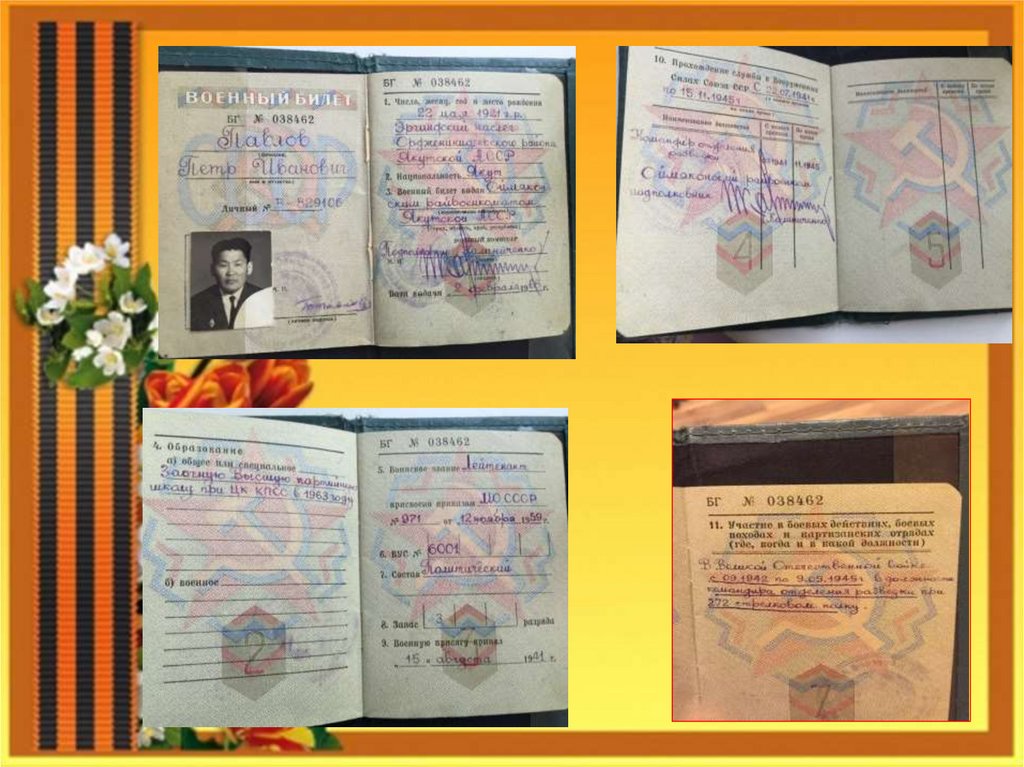 ВОЕННЫЙ БИЛЕТ
БГ № 038462
Павлов
Петр Иванович
Личный №
М. П.
(личная подпись)
БГ № 038462
1. Число, месяц, год и место рождения
22 мая 1921 г.р.
наслег
Орджоникидзевского района
Якутской АССР
2. Национальность Якут
3. Военный билет выдан Оймякон
ским райвоенкоматом
Якутской АССР
военный комиссар
Подполковник Калиниченко
Дата выдачи 2 февраля
10. Прохождение службы в Вооруженных
Силах Союза ССР С 22.07.1941г.
по 15.11.1945г
Командир отделения
разведки 11.1945
Оймяконский райвоенком
подполковник
(Калиниченко)
4
5
4. Образование
а) общее или специальное
Заочную Высшую партийную
школу при ЦК КПСС в 1963 году
б) военное
2
БГ № 038462
5. Воинское звание Лейтенант
присвоено приказом МО СССР
№ 971 от 12 ноября 1959 г.
6. ВУС № 6001
7. Состав Политический
8. Запас 3 разряда
9. Военную присягу принял
„15" августа 1941 г.
БГ № 038462
11. Участие в боевых действиях, боевых
походах и партизанских отрядах
(где, когда и в какой должности)
В Великой Отечественной войне
с 09.1942 по 9.05.1945г в должности
командира отделения разведки при
872 стрелковом полку.
7